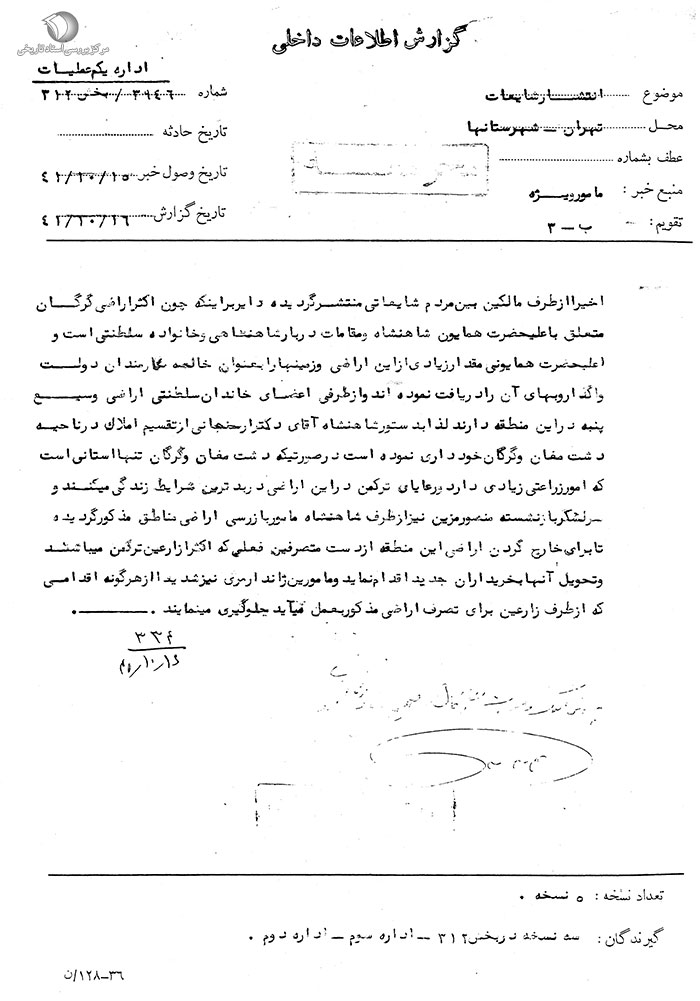 مرکز بررسی اسناد تاریخی
گزارش اطلاعات داخلی
اداره یکم عملیات
موضوع انتشار شایعات
شماره ۳۹۴۶ / بخش ۳۱۲
محل تهران – شهرستانها
تاریخ حادثه
عطف بشماره
تاریخ وصول خبر ۴۱/۱۰/۱۵
منبع خبر : مامور ویژه
تاریخ گزارش ۴۱/۱۰/۱۶
تقویم : ب – ۳
اخیرا از طرف مالکین بین مردم شایعاتی منتشر گردیده دایر براینکه چون اکثر اراضی گرگان
متعلق باعلیحضرت همایون شاهنشاه ومقامات دربار شاهنشاهی وخانواده سلطنتی است و
اعلیحضرت همایونی مقدار زیادی از این اراضی وزمینها را بعنوان خالصه بکارمندان دولت
واگذار وبهای آن را دریافت نموده اند واز طرفی اعضای خاندان سلطنتی اراضی وسیع
پنبه در این منطقه دارند لذا بدستور شاهنشاه آقای دکتر ارسنجانی از تقسیم املاک در ناحیه
دشت مغان وگرگان خودداری نموده است در صورتیکه دشت مغان وگرگان تنها استانی است
که امور زراعتی زیادی دارد ورعایای ترکمن در این اراضی در بدترین شرایط زندگی میکنند و
سرلشگر بازنشسته منصور مزین نیز از طرف شاهنشاه مامور بازرسی اراضی مناطق مذکور گردیده
تا برای خارج کردن اراضی این منطقه از دست متصرفین فعلی که اکثر زارعین ترکمن میباشند
وتحویل آنها بخریداران جدید اقدام نماید ومامورین ژاندارمری نیز شدیدا از هرگونه اقدامی
که از طرف زارعین برای تصرف اراضی مذکور بعمل میآید جلوگیری مینمایند .
۳۳۴
۴۱/۱۰/۱۶
تعداد نسخه : ۵ نسخه .
گیرندگان : سه نسخه در بخش ۳۱۲ – اداره سوم – اداره دوم .
۳۶–۱۲۸/ن